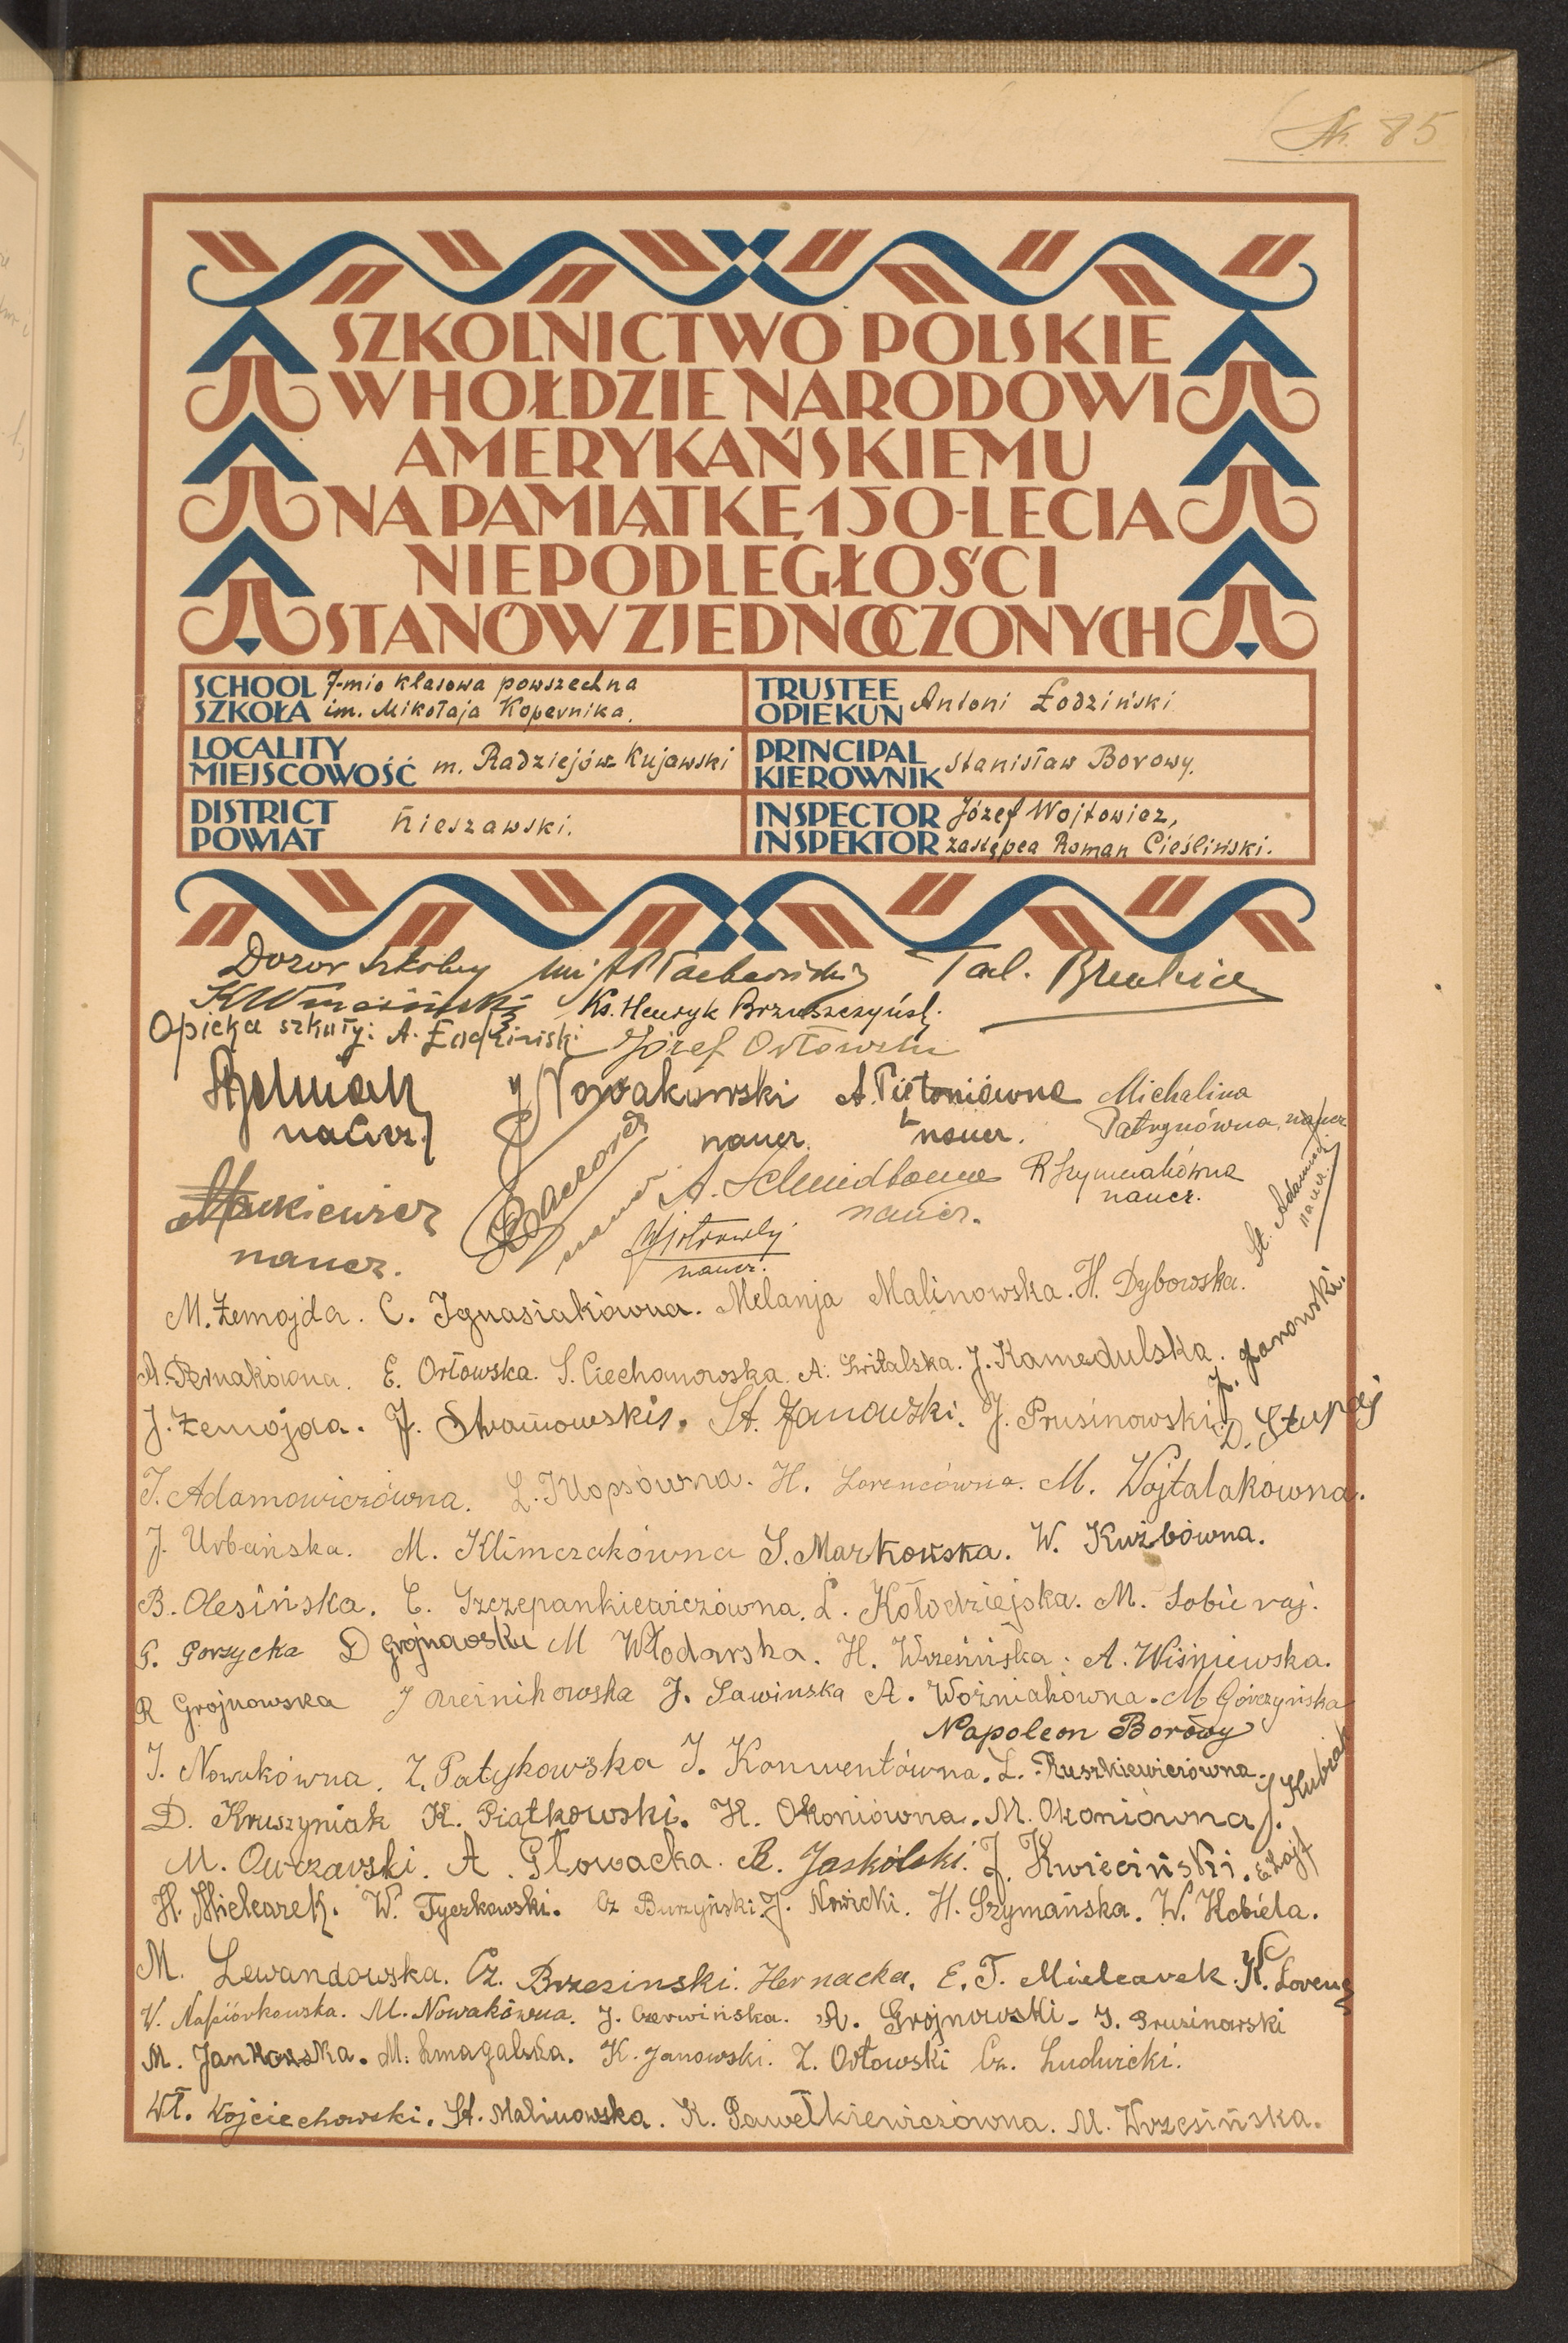 № 85
SZKOLNICTWO POLSKIE
W HOŁDZIE NARODOWI
AMERYKAŃSKIEMU
NA PAMIĄTKĘ 150-LECIA
NIEPODLEGŁOŚCI
STANÓW ZJEDNOCZONYCH
SCHOOL SZKOŁA 7-mio klasowa powszechna im. Mikołaja Kopernika.
TRUSTEE OPIEKUN Antoni Łodziński
LOCALITY MIEJSCOWOŚĆ m. Radziejów Kujawski
PRINCIPAL KIEROWNIK Stanisław Borowy.
DISTRICT POWIAT Nieszawski.
INSPECTOR INSPEKTOR Józef Wojtowicz, zastępca Roman Cieśliński.
Dozór szkolny
Ks. Henryk Brzuszczyński
Opieka szkoły: A. Łodziński Józef Orłowski
J Nowakowski A. Pietoniówna Michalina
naucz. naucz. naucz. Patrynówna, naucz
A. Schmidtowa R Szymczakówna St. Adamiak
naucz. naucz. naucz. naucz. naucz.
M. Żemojda. C. Ignasiakówna. Melanja Malinowska. H. Dybowska.
A. Pernakówna. E. Orłowska. S. Ciechanowska. A. Świtalska. J. Kamedulska. J. Janowski.
J. Żemojda. J. Stranowski. St. Janowski. J. Prusinowski. D. Stupaj
J. Adamowiczówna. L. Klopsówna. H. Lorencówna. M. Wojtalakówna.
J. Urbańska. M. Klimczakówna S. Markowska. W. Kuźbówna.
B. Olesińska. C. Szczepankiewiczówna. L. Kołodziejska. M. Sobieraj.
G. Gorzycka D Grojnowska M Włodarska. H. Wrzesińska. A. Wiśniewska.
R Grojnowska J Mernikowska J. Sawinska A. Woźniakówna. M Górczyńska
Napoleon Borowy
J. Nowakówna. Z. Patykowska J. Konwentówna. L. Ruszkiewiczówna. J. Kubiak
D. Kruszyniak K. Piątkowski. H. Okoniówna. M. Okoniówna
M. Owczarski. A. Głowacka. R. Jaskólski. J. Kwieciński. E. Łojt
H. Mielcarek. W. Tyczkowski. Cz Burzyński. J. Nowicki. H. Szymańska. W. Kobiela.
M. Lewandowska. Cz. Brzesinski. Hernacka. E. T. Mielcarek. K. Lorenc
W. Napiórkowska. M. Nowakówna. J. Czerwińska. A. Grojnowski. J. Prusinowski
M. Jankowska. M. Smagalska. K. Janowski. Z. Orłowski Cz. Ludwicki.
Wł. Wojciechowski. St. Malinowska. K. Pawełkiewiczówna. M. Wrzesińska.